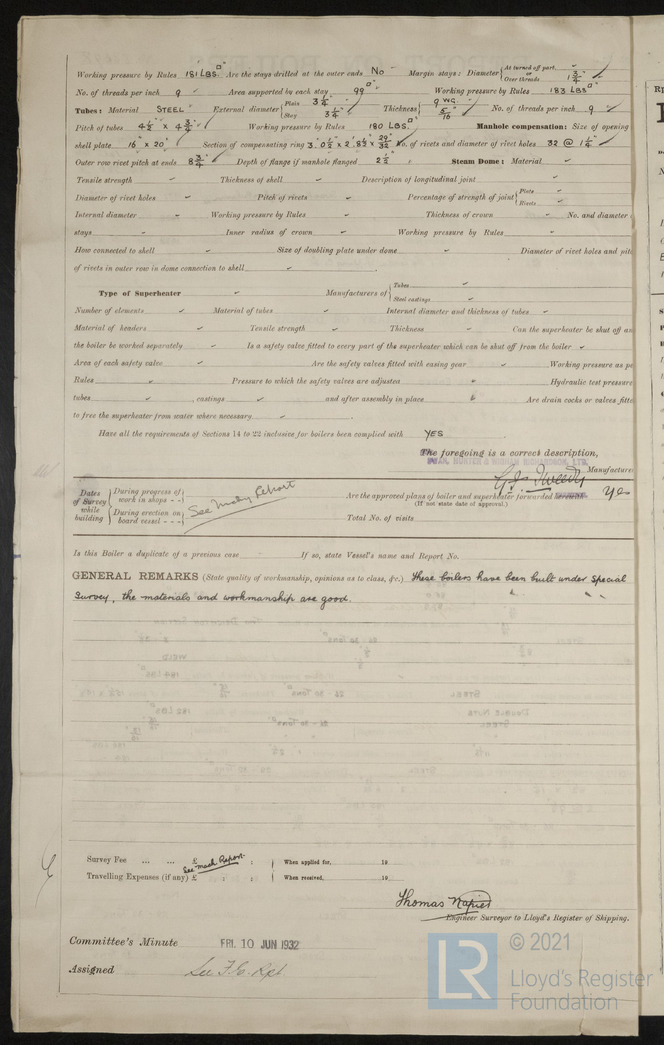 Working pressure by Rules 181 LBS□" Are the stays drilled at the outer ends No Margin stays: Diameter { At turned off part, ✓ Over threads 1 3/4" ✓
No. of threads per inch 9 ✓ Area supported by each stay 99□" Working pressure by Rules 183 LBS□"
Tubes: Material STEEL ✓ External diameter { Plain 3 1/4" Stay 3 1/4" ✓ Thickness { 9 WG. 5/16" ✓ No. of threads per inch 9 ✓
Pitch of tubes 4 1/2" × 4 3/4" ✓ Working pressure by Rules 180 LBS.□" Manhole compensation: Size of opening
shell plate 16" × 20" ✓ Section of compensating ring 3'. 0 1/2" × 2'. 8 1/2" × 29/32" No. of rivets and diameter of rivet holes 32 @ 1 1/4" ✓
Outer row rivet pitch at ends 8 3/4" ✓ Depth of flange if manhole flanged 2 1/2" ✓ Steam Dome: Material ✓
Tensile strength ✓ Thickness of shell ✓ Description of longitudinal joint ✓
Diameter of rivet holes ✓ Pitch of rivets ✓ Percentage of strength of joint { Plate ✓ Rivets ✓
Internal diameter ✓ Working pressure by Rules ✓ Thickness of crown ✓ No. and diameter
stays ✓ Inner radius of crown ✓ Working pressure by Rules ✓
How connected to shell ✓ Size of doubling plate under dome ✓ Diameter of rivet holes and pitch
of rivets in outer row in dome connection to shell ✓
Type of Superheater ✓ Manufacturers of { Tubes ✓ Steel castings ✓
Number of elements ✓ Material of tubes ✓ Internal diameter and thickness of tubes ✓
Material of headers ✓ Tensile strength ✓ Thickness ✓ Can the superheater be shut off an
the boiler be worked separately ✓ Is a safety valve fitted to every part of the superheater which can be shut off from the boiler ✓
Area of each safety valve ✓ Are the safety valves fitted with easing gear ✓ Working pressure as pe
Rules ✓ Pressure to which the safety valves are adjusted ✓ Hydraulic test pressure
tubes ✓, castings ✓ and after assembly in place ✓ Are drain cocks or valves fitte
to free the superheater from water where necessary ✓
Have all the requirements of Sections 14 to 22 inclusive for boilers been complied with YES
The foregoing is a correct description,
SWAN, HUNTER & WIGHAM RICHARDSON, LTD.
G.J. Tweedy Manufacturer
Dates of Survey while building { During progress of work in shops - - } { During erection on board vessel - - - } See Machy Report Are the approved plans of boiler and superheater forwarded herewith Yes
(If not state date of approval.)
Total No. of visits
Is this Boiler a duplicate of a previous case If so, state Vessel's name and Report No.
GENERAL REMARKS (State quality of workmanship, opinions as to class, &c.) These boilers have been built under special
Survey, the materials and workmanship are good.
Survey Fee ... ... £ See Mach Report. : : { When applied for, 19
Travelling Expenses (if any) £ : : { When received, 19
Thomas Napier
Engineer Surveyor to Lloyd's Register of Shipping.
Committee's Minute FRI. 10 JUN 1932
Assigned See F.E. Rpt
LR © 2021
Lloyd's Register
Foundation